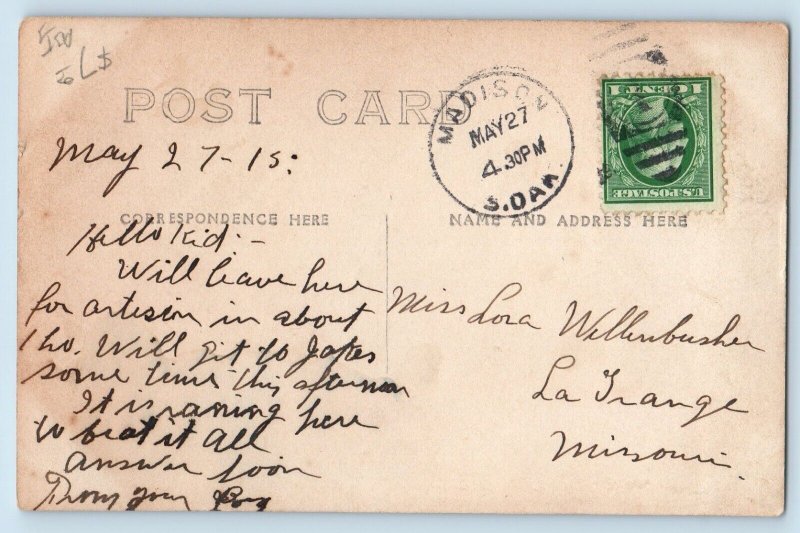 POST CARD
MADISON
MAY 27
4.30PM
S.DAK.
1 CENT 1
U.S. POSTAGE
May 27-15:
CORRESPONDENCE HERE
NAME AND ADDRESS HERE
Hello Kid:-
Will leave here
for artesion in about
1 ho. Will git to
some time this afternoon
It is raning here
to beat it all
answer soon
From your
Miss Lora Wellenbusher
La Grange
Missouri.